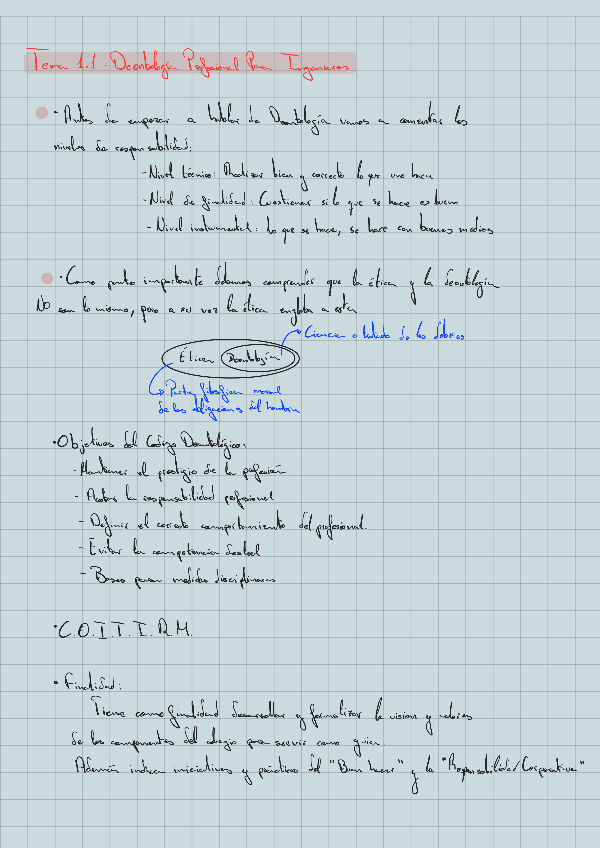 Tema 1.1: Deontología Profesional Para Ingenieros
· Antes de empezar a hablar de Deontología vamos a comentar los
niveles de responsabilidad:
- Nivel técnico: Realizar bien y correcto lo que uno hace
- Nivel de finalidad: Cuestionar si lo que se hace es bueno
- Nivel instrumental: Lo que se hace, se hace con buenos medios
· Como punto importante debemos comprender que la ética y la deontología
NO son lo mismo, pero a su vez la ética engloba a esta
Ciencia o tratado de los deberes
Ética Deontología
Parte filosófica moral
de las obligaciones del hombre
· Objetivos del Código Deontológico:
- Mantener el prestigio de la profesión
- la responsabilidad profesional
- Definir el correcto comportamiento del profesional.
- Evitar la competencia desleal
- Bases para medidas disciplinarias
· C.O.I.T.I.R.M.
· Finalidad:
Tiene como finalidad desarrollar y formalizar la visión y valores
de los componentes del colegio para servir como guía.
Además indica iniciativas y prácticas del "Buen hacer" y la "Responsabilidad Corporativa"